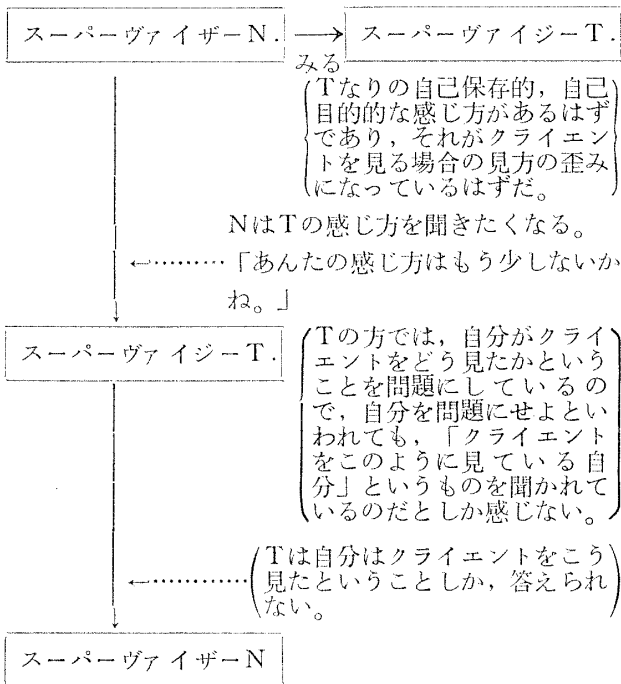 スーパーヴァイザーN. → スーパーヴァイジーT.
みる
(Tなりの自己保存的，自己
目的的な感じ方があるはず
であり，それがクライエン
トを見る場合の見方の歪み
になっているはずだ。)
NはTの感じ方を聞きたくなる。
←………「あんたの感じ方はもう少しないか
ね。」
スーパーヴァイジーT.
(Tの方では，自分がクライ
エントをどう見たかという
ことを問題にしているの
で，自分を問題にせよとい
われても，「クライエント
をこのように見ている自
分」というものを聞かれて
いるのだとしか感じない。)
←…………(Tは自分はクライエントをこう
見たということしか，答えられ
ない。)
スーパーヴァイザーN